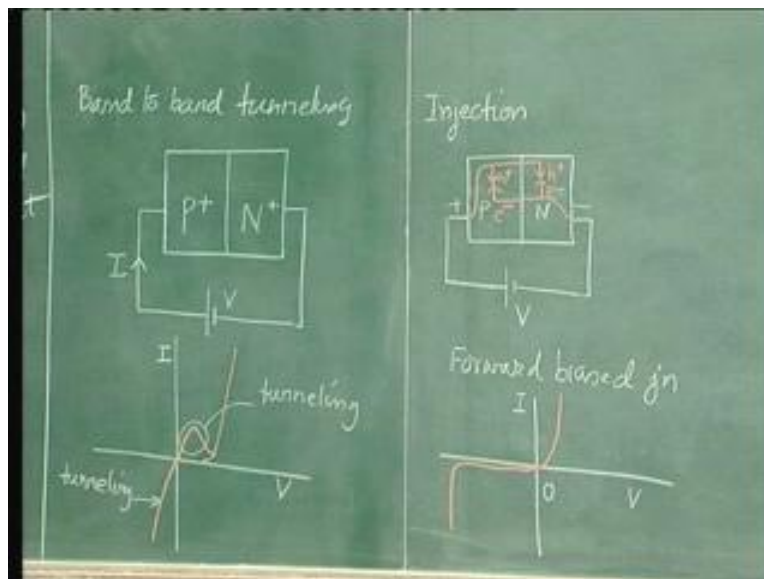 Band to band tunneling
P+ N+
I
V
I
tunneling
tunneling
V
Injection
+ P N −
e−
V
Forward biased jn
I
O
V